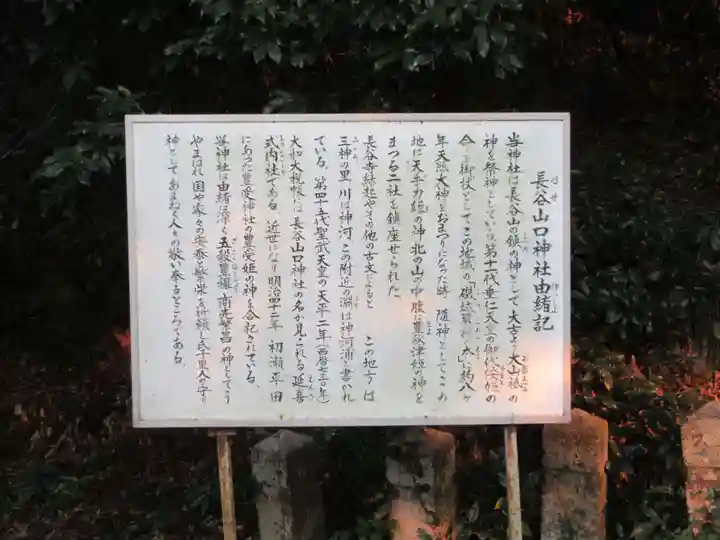 長谷山口神社由緒記
当神社は長谷山の鎮の神として、太古より大山祇の
神を祭神としている。第十一代垂仁天皇の御代倭姫の
命を御杖としてこの地域の「磯城嚴橿の本」に約八ヶ
年天照大神をおまつりになった時、随神としてこの
地に天手力雄の神、北の山の中腹に豊秋津姫の神を
まつる二社を鎮座せられた。
長谷寺縁起やその他の古文によると この地方は
三神の里、川は神河、この附近の淵は神河浦と書かれ
ている。第四十五代聖武天皇の天平二年(西暦七三〇年)
大和大税帳には長谷山口神社の名が見られる延喜
式内社である。近世になり明治四十二年 初瀬平田
にあった豊受神社の豊受姫の神を合祀されている。
当神社は由緒は深く五穀豊穰、商売繁昌の神としてう
やまはれ、国や家々の安泰と繁栄を祈願し氏子里人の守り
神としてあまねく人々の敬い参るところである。